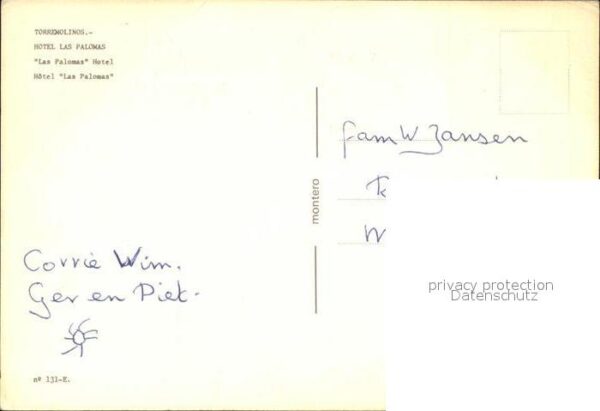 TORREMOLINOS.-
HOTEL LAS PALOMAS
"Las Palomas" Hotel
Hôtel "Las Palomas"
fam W Jansen
montero
Corrie Wim.
Ger en Piet.
nº 131-E.
privacy protection
Datenschutz